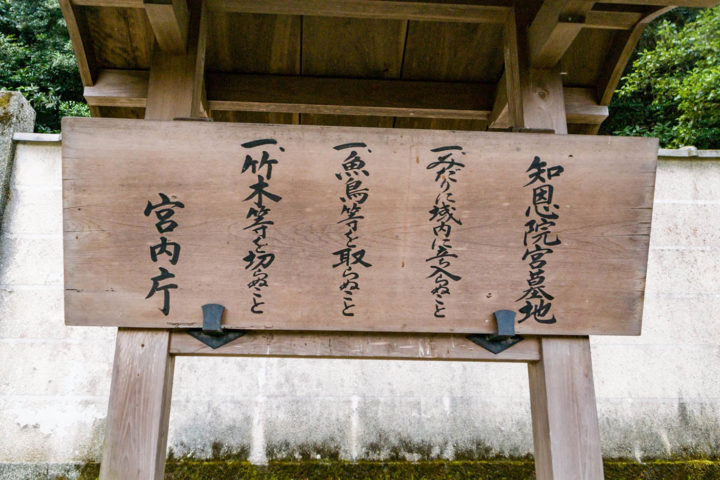 知恩院宮墓地
一、みだりに域内に立入らぬこと
一、魚鳥等を取らぬこと
一、竹木等を切らぬこと
宮内庁